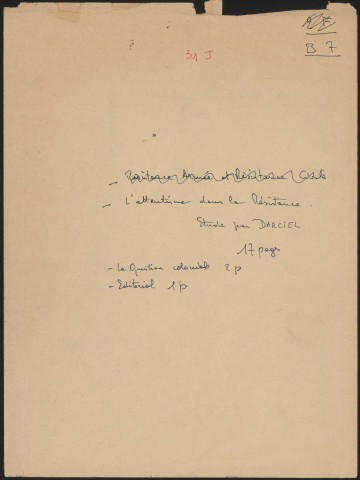 B 7
31 J
- Résistance Armée et Résistance Civile
- L'attentisme dans la Résistance.
Etude par DARCIEL
17 pages
- La Question coloniale 2 p
- Editorial 1 p